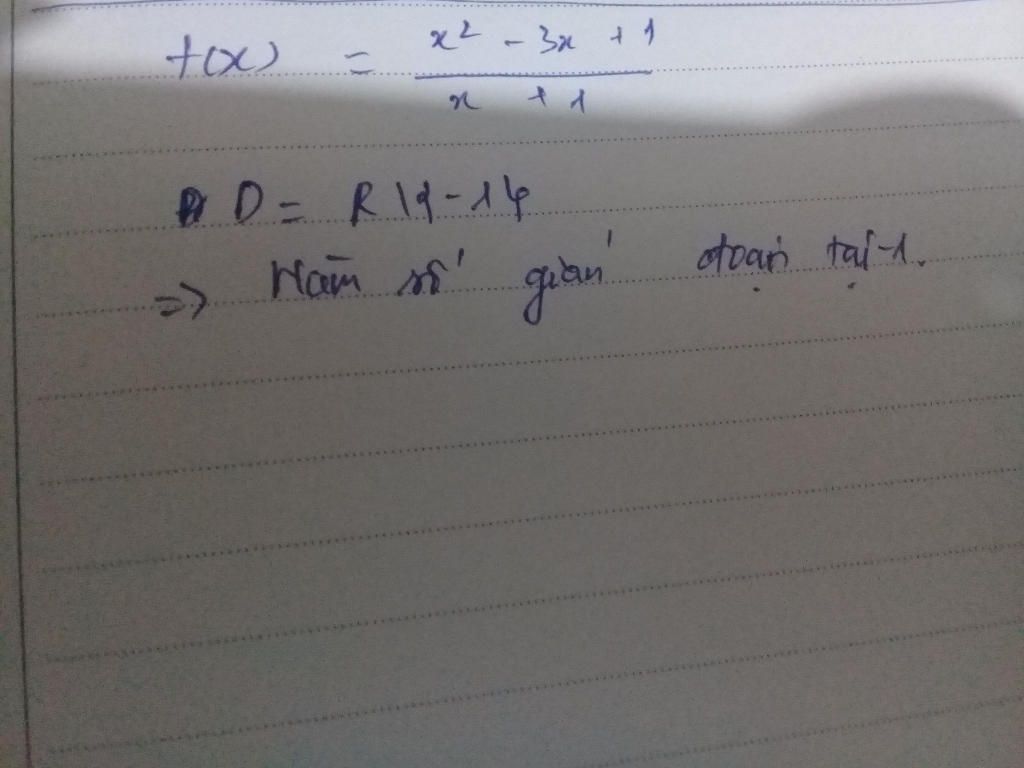 f(x) = x² - 3x + 1 / x + 1
D = R \ {-1}
=> Hàm số gián đoạn tại -1.